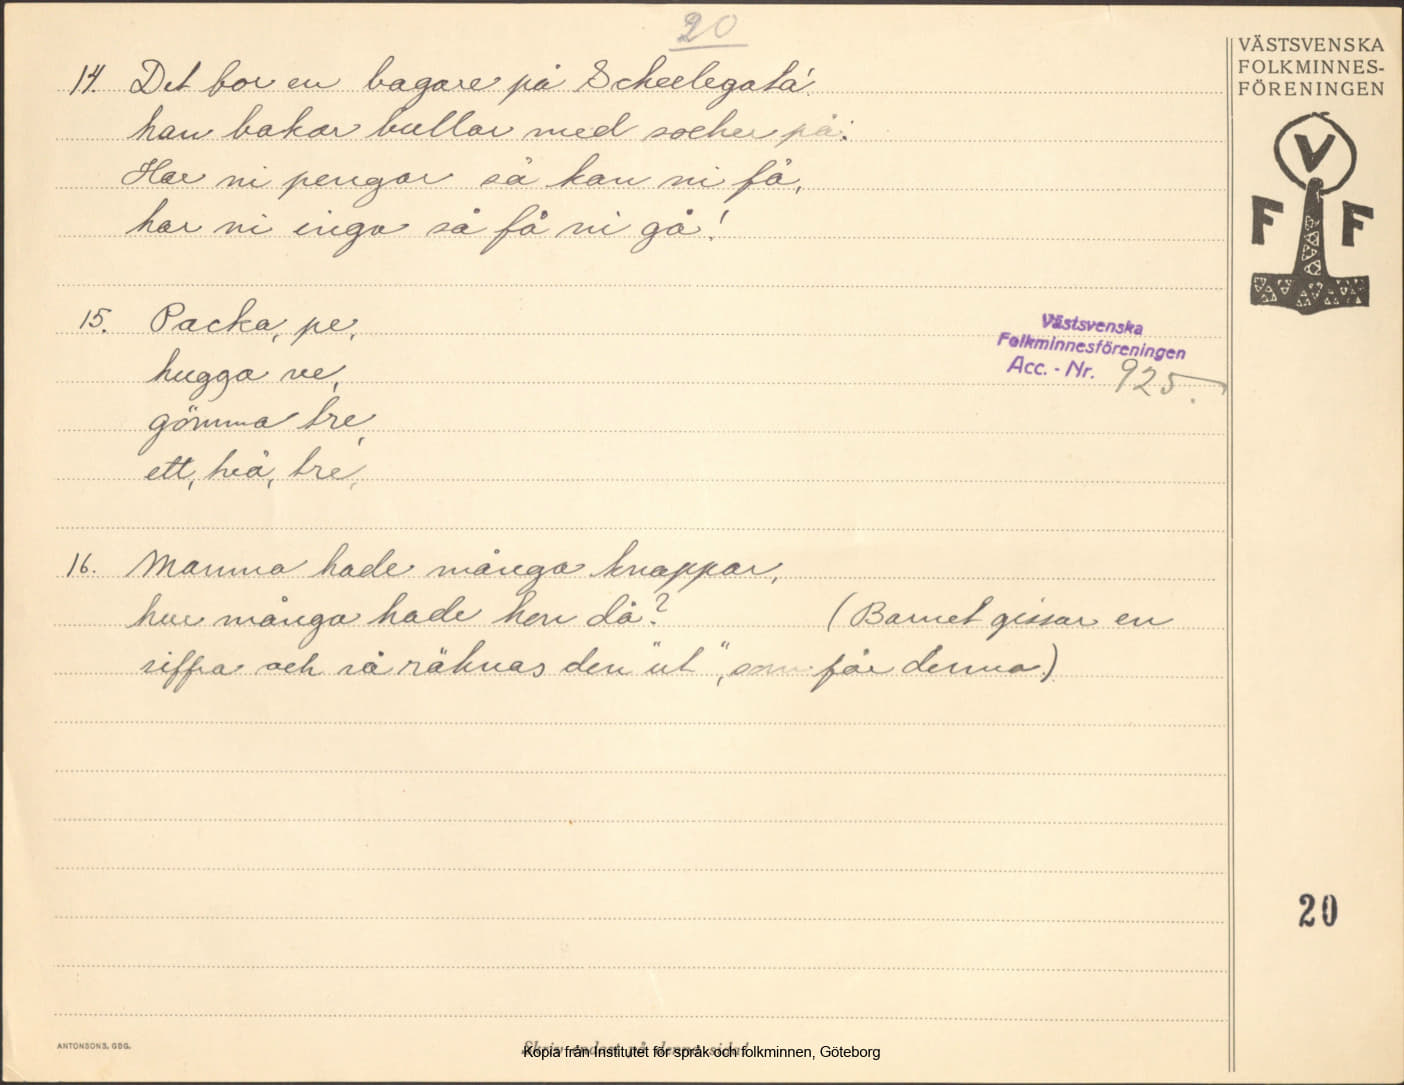 20
14. Det bor en bagare på Scheelegatá
han bakar bullar med socker på.
Har ni pengar så kan ni få,
har ni inga så få ni gå!
15. Packa, pe,
hugga ve,
gömma tre,
ett, två, tre,
16. Mamma hade många knappar,
hur många hade hon då? (Barnet gissar en
siffra och så räknas den "ut", som får denna)
VÄSTSVENSKA
FOLKMINNES-
FÖRENINGEN
V
F F
Västsvenska
Folkminnesföreningen
Acc. - Nr. 925.
20
ANTONSONS, GBG.
Skriv endast på denna sida!
Kopia från Institutet för språk och folkminnen, Göteborg